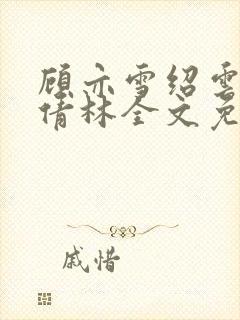 顾亦雪绍雲
倩林全文免
戚惜